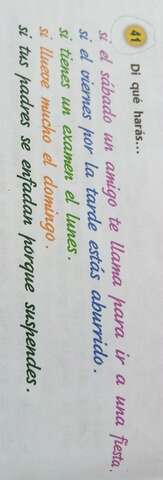 41 Di qué harás...
si el sábado un amigo te llama para ir a una fiesta.
si el viernes por la tarde estás aburrido.
si tienes un examen el lunes.
si llueve mucho el domingo.
si tus padres se enfadan porque suspendes.